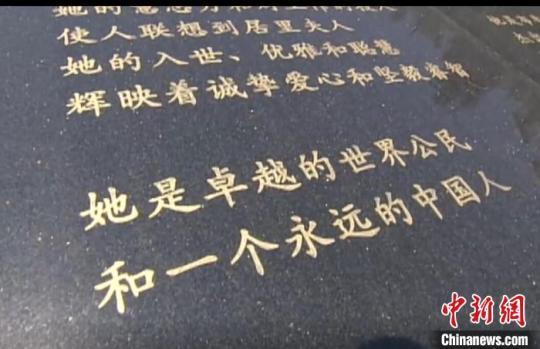 使人联想到居里夫人
她的入世、优雅和聪慧
辉映着诚挚爱心和坚毅睿智
她是卓越的世界公民
和一个永远的中国人
中新网
Chinanews.com